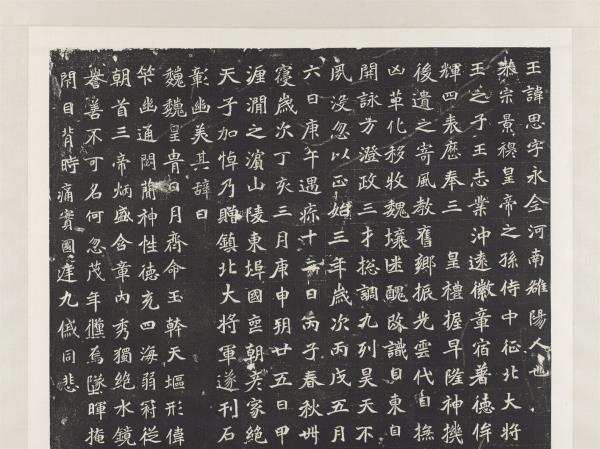 王諱思字永全河南雒陽人也
恭宗景穆皇帝之孫侍中征北大將
王之子王志業沖遠徽章宿著德侔
輝四表歷奉三 皇禮握早隆神機
後遺之寄風教舊鄉振光雲代自撫
凶革化移牧魏壤迷醜改識自東自
開詠方澄政三才揔調九列昊天不
夙没忽以正始三年歲次丙戌五月
六日庚午遇疹十二日丙子春秋卌
寑歲次丁亥三月庚申朔廿五日甲
湹澗之濱山陵東埠國喪朝家絕
天子加悼乃贈鎮北大將軍遂刊石
彰幽美其辭曰
巍巍皇胄日月齊命玉幹天樞形偉
竿幽通閟簡神性德充四海弱冠從
朝首三帝炳盛含章內秀獨絕水鏡
譽善不可名何忽茂年焉墜暉掩
目背時痛實國逹九戚同悲